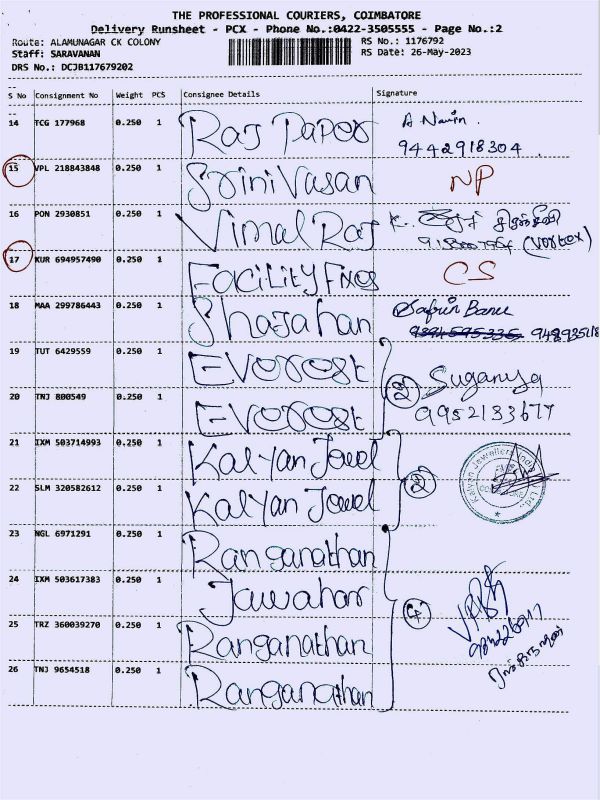 THE PROFESSIONAL COURIERS, COIMBATORE
Delivery Runsheet - PCX - Phone No.:0422-3505555 - Page No.:2
Route: ALAMUNAGAR CK COLONY RS No.: 1176792
Staff: SARAVANAN RS Date: 26-May-2023
DRS No.: DCJB117679202
S No Consignment No Weight PCS Consignee Details Signature
14 TCG 177968 0.250 1 Raj Paper A Navin.
9442918304.
15 VPL 218843848 0.250 1 Srinivasan NP
16 PON 2930851 0.250 1 Vimal Raj K.
(Vortex)
17 KUR 694957490 0.250 1 Facility Fixes CS
18 MAA 299786443 0.250 1 Shajahan Safrin Banu
19 TUT 6429559 0.250 1 Everest
2 Suganya
20 TNJ 800549 0.250 1 Everest 9952133677
21 IXM 503714993 0.250 1 Kalyan Jewel
2 Kalyan Jewellers India Ltd.,
22 SLM 320582612 0.250 1 Kalyan Jewel
23 NGL 6971291 0.250 1 Ranganathan
24 IXM 503617383 0.250 1 Jawahar
4
25 TRZ 360039270 0.250 1 Ranganathan
26 TNJ 9654518 0.250 1 Ranganathan